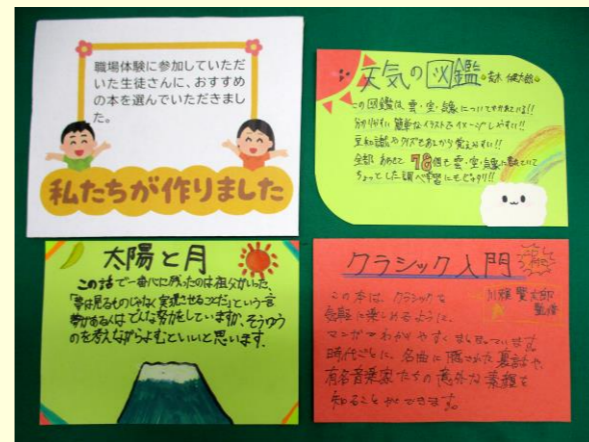 職場体験に参加していただ
いた生徒さんに、おすすめ
の本を選んでいただきまし
た。
私たちが作りました
天気の図鑑
この図鑑は、雲・空・気象についてかかれている!!
分かりやすい簡単なイラストでイメージしやすい!!
豆知識やクイズもあしから覚えやすい!!
全部 あわせて 78個も雲・空・気象に載ていて
ちょっとした調べ学習にもピッタリ!!
太陽と月
この話で一番心に残ったのは祖父がいった、
「夢は見るものじゃなく実現させることだ」という言
葉があるくはどんな努力をしていますか、そうゆう
のを考えながらよむといいと思います。
クラシック入門
監修
この本は、クラシックを
気軽に楽しめるように、
マンガでわかりやすくまとまっています。
時代ごとに、名曲に隠された裏話や、
有名音楽家たちの意外な素顔を
知ることができます。